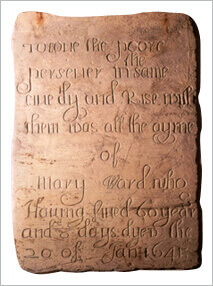 to loue the poore
perseuer in the same
liue dy and Rise with
them was all the ayme
of
Mary Ward who
Hauing liued 60 years
and 8 days dyed the
20 of Jan 1645